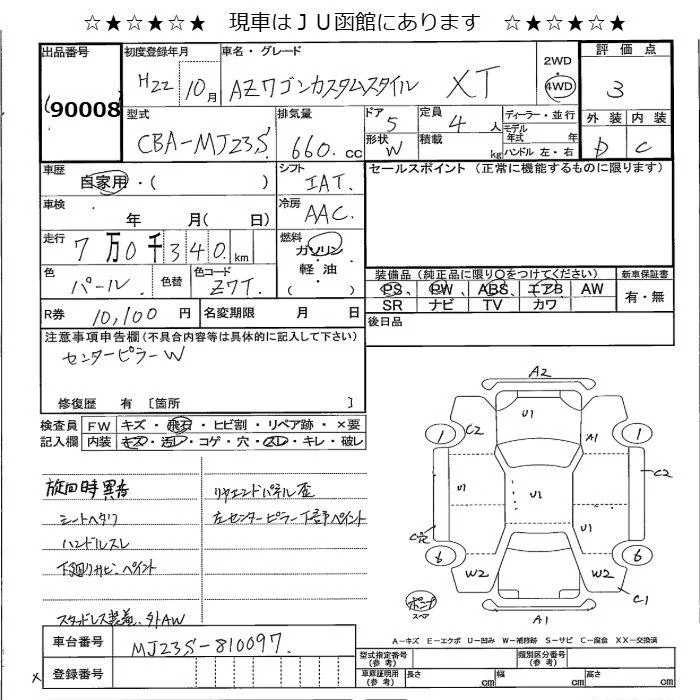 ☆★☆★☆★ 現車はＪＵ函館にあります ☆★☆★☆★
出品番号
90008
初度登録年月
H22 10月
車名・グレード
AZワゴンカスタムスタイル XT
2WD
4WD
評価点
3
外装 内装
D C
型式
CBA-MJ23S
排気量
660.cc
ドア
5
形状
W
定員
4人
積載
kg
ディーラー・並行
モデル年式 年
ハンドル 左・右
車歴
自家用・( )
シフト
IAT.
車検
年 月( 日)
冷房
AAC.
走行
7万0千340.km
燃料
ガソリン
軽油
( )
色
パール.
色替
色コード
Z7T.
R券
10,100 円
名変期限 月 日
セールスポイント (正常に機能するものに限ります)
装備品(純正品に限り○をつけてください)
新車保証書
PS、PW、ABS、エアB AW
SR ナビ TV カワ
有・無
後日品
注意事項申告欄(不具合内容等は具体的に記入して下さい)
センターピラーW
修復歴 有 〔箇所 〕
検査員記入欄
FW キズ・飛石・ヒビ割・リペア跡・×要
内装 キズ・汚レ・コゲ・穴・スレ・キレ・破レ
旋回時異音
シートヘタリ
ハンドルスレ
下廻リサビ、ペイント
スタッドレス装着、外AW
リヤエンドパネル歪
左センターピラー下部ペイント
A2
U1
1 C2
A1 1
U1 U1
C2
U1
6 6
W2 W2
C1
A1
スペア
A－キズ E－エクボ U－凹み W－補修跡 S－サビ C－腐食 XX－交換済
車台番号
MJ23S-810097.
登録番号
型式指定番号(参考)
類別区分番号(参考)
車庫証明用(参考)
長さ cm
幅 cm
高さ cm